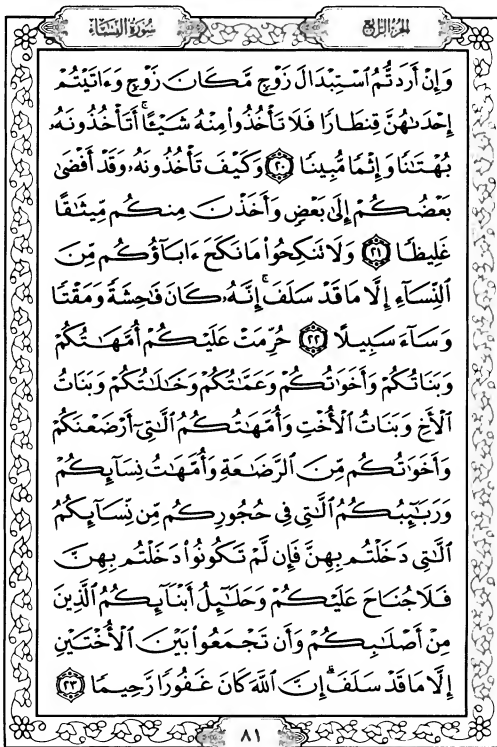 الجزء الرابع
سورة النساء
وَإِنْ أَرَدتُّمُ ٱسْتِبْدَالَ زَوْجٍ مَّكَانَ زَوْجٍ وَءَاتَيْتُمْ
إِحْدَىٰهُنَّ قِنطَارًا فَلَا تَأْخُذُوا۟ مِنْهُ شَيْـًٔا ۚ أَتَأْخُذُونَهُۥ
بُهْتَـٰنًا وَإِثْمًا مُّبِينًا ٢٠ وَكَيْفَ تَأْخُذُونَهُۥ وَقَدْ أَفْضَىٰ
بَعْضُكُمْ إِلَىٰ بَعْضٍ وَأَخَذْنَ مِنكُم مِّيثَـٰقًا
غَلِيظًا ٢١ وَلَا تَنكِحُوا۟ مَا نَكَحَ ءَابَآؤُكُم مِّنَ
ٱلنِّسَآءِ إِلَّا مَا قَدْ سَلَفَ ۚ إِنَّهُۥ كَانَ فَـٰحِشَةً وَمَقْتًا
وَسَآءَ سَبِيلًا ٢٢ حُرِّمَتْ عَلَيْكُمْ أُمَّهَـٰتُكُمْ
وَبَنَاتُكُمْ وَأَخَوَٰتُكُمْ وَعَمَّـٰتُكُمْ وَخَـٰلَـٰتُكُمْ وَبَنَاتُ
ٱلْأَخِ وَبَنَاتُ ٱلْأُخْتِ وَأُمَّهَـٰتُكُمُ ٱلَّـٰتِىٓ أَرْضَعْنَكُمْ
وَأَخَوَٰتُكُم مِّنَ ٱلرَّضَـٰعَةِ وَأُمَّهَـٰتُ نِسَآئِكُمْ
وَرَبَـٰٓئِبُكُمُ ٱلَّـٰتِى فِى حُجُورِكُم مِّن نِّسَآئِكُمُ
ٱلَّـٰتِى دَخَلْتُم بِهِنَّ فَإِن لَّمْ تَكُونُوا۟ دَخَلْتُم بِهِنَّ
فَلَا جُنَاحَ عَلَيْكُمْ وَحَلَـٰٓئِلُ أَبْنَآئِكُمُ ٱلَّذِينَ
مِنْ أَصْلَـٰبِكُمْ وَأَن تَجْمَعُوا۟ بَيْنَ ٱلْأُخْتَيْنِ
إِلَّا مَا قَدْ سَلَفَ ۗ إِنَّ ٱللَّهَ كَانَ غَفُورًا رَّحِيمًا ٢٣
٨١